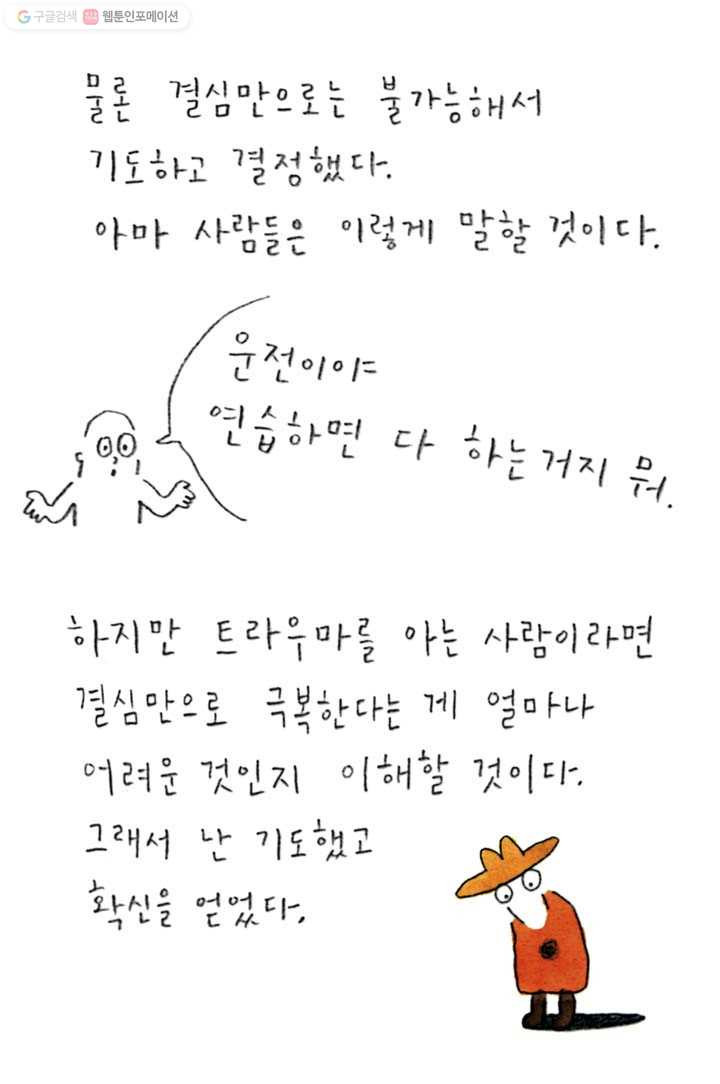 구글검색 웹툰인포메이션
물론 결심만으로는 불가능해서
기도하고 결정했다.
아마 사람들은 이렇게 말할 것이다.
운전이야
연습하면 다 하는거지 뭐.
하지만 트라우마를 아는 사람이라면
결심만으로 극복한다는 게 얼마나
어려운 것인지 이해할 것이다.
그래서 난 기도했고
확신을 얻었다.